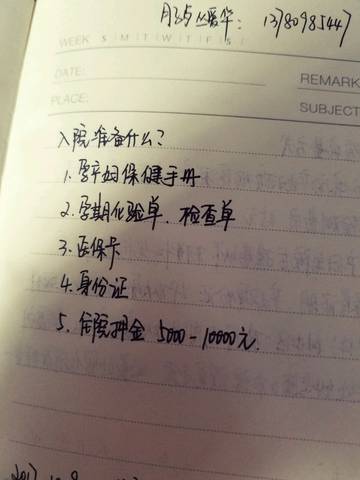 月子与丛爱华: 13780985447
WEEK S M T W T F S
DATE:
REMARK
PLACE:
SUBJECT
入院准备什么?
1. 孕产妇保健手册
2. 孕期化验单、检查单
3. 医保卡
4. 身份证
5. 住院押金 5000-10000元.